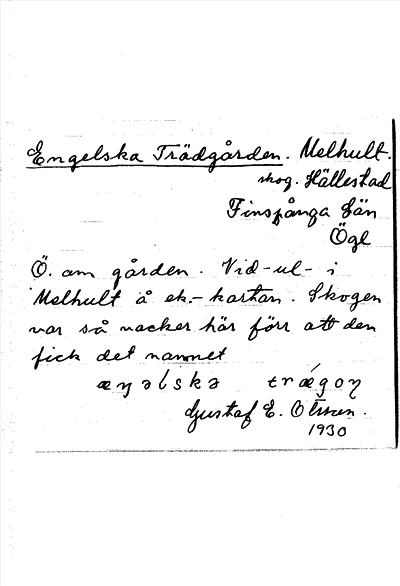 Engelska Trädgården. Melhult.
skog. Hällestad
Finspånga län
Ögl
Ö. om gården. Vid-ul- i
Melhult å ek.-kartan. Skogen
var så vacker här förr att den
fick det namnet
æŋəlskə trǽgoŋ
Gustaf E. Olsson.
1930